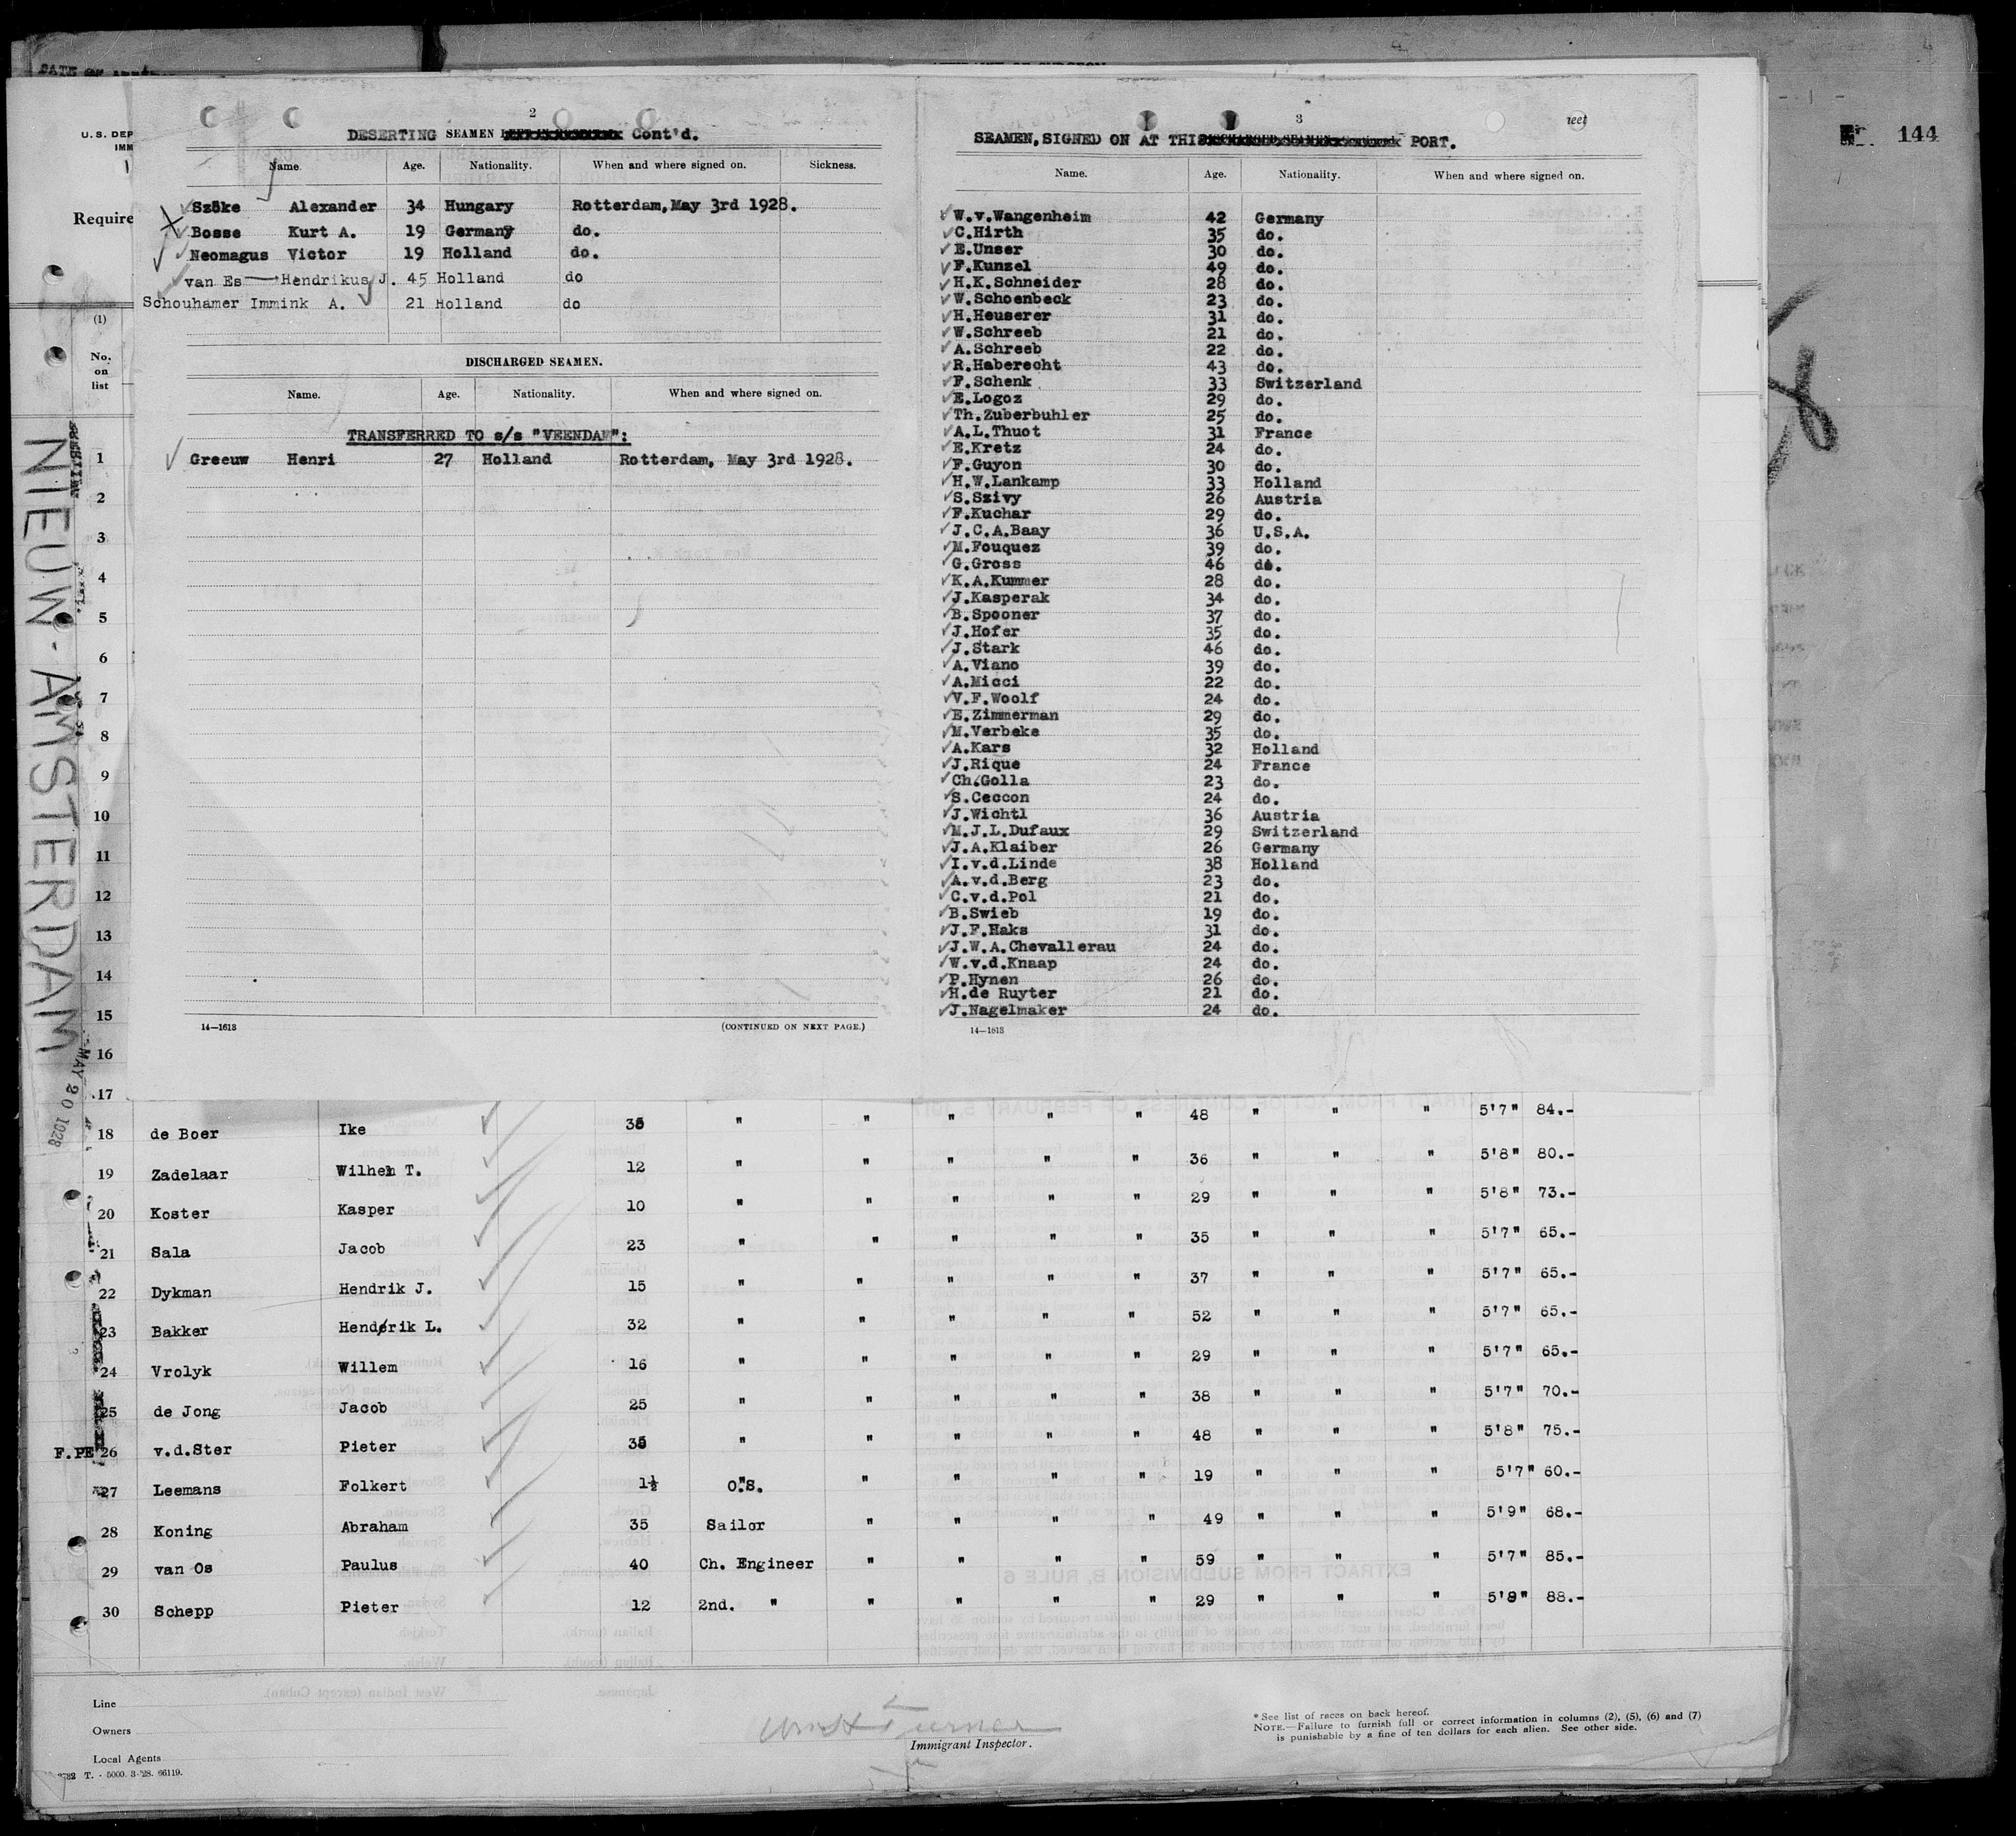 144
U.S. DEP
IMM
Require
(1)
No.
on
list
NIEUW-AMSTERDAM
MAY 20 1928
2
DESERTING SEAMEN Cont'd.
Name. Age. Nationality. When and where signed on. Sickness.
Szöke Alexander 34 Hungary Rotterdam, May 3rd 1928.
Bosse Kurt A. 19 Germany do.
Neomagus Victor 19 Holland do.
van Es Hendrikus J. 45 Holland do
Schouhamer Immink A. 21 Holland do
DISCHARGED SEAMEN.
Name. Age. Nationality. When and where signed on.
TRANSFERRED TO s/s "VEENDAM":
Greeuw Henri 27 Holland Rotterdam, May 3rd 1928.
14—1613 (CONTINUED ON NEXT PAGE.)
3
SEAMEN, SIGNED ON AT THIS PORT.
Name. Age. Nationality. When and where signed on.
W.v.Wangenheim 42 Germany
C.Hirth 35 do.
E.Unser 30 do.
F.Kunzel 49 do.
H.K.Schneider 28 do.
W.Schoenbeck 23 do.
H.Heuserer 31 do.
W.Schreeb 21 do.
A.Schreeb 22 do.
R.Haberecht 43 do.
F.Schenk 33 Switzerland
E.Logoz 29 do.
Th.Zuberbuhler 25 do.
A.L.Thuot 31 France
E.Kretz 24 do.
F.Guyon 30 do.
H.W.Lankamp 33 Holland
S.Szivy 26 Austria
F.Kuchar 29 do.
J.C.A.Baay 36 U.S.A.
M.Fouquez 39 do.
G.Gross 46 do.
K.A.Kummer 28 do.
J.Kasperak 34 do.
B.Spooner 37 do.
J.Hofer 35 do.
J.Stark 46 do.
A.Viano 39 do.
A.Micci 22 do.
V.F.Woolf 24 do.
E.Zimmerman 29 do.
M.Verbeke 35 do.
A.Kars 32 Holland
J.Rique 24 France
Ch.Golla 23 do.
S.Ceccon 24 do.
J.Wichtl 36 Austria
M.J.L.Dufaux 29 Switzerland
J.A.Klaiber 26 Germany
I.v.d.Linde 38 Holland
A.v.d.Berg 23 do.
C.v.d.Pol 21 do.
B.Swieb 19 do.
J.F.Haks 31 do.
J.W.A.Chevallerau 24 do.
W.v.d.Knaap 24 do.
P.Hynen 26 do.
H.de Ruyter 21 do.
J.Nagelmaker 24 do.
14—1613
1
2
3
4
5
6
7
8
9
10
11
12
13
14
15
16
17
18 de Boer Ike 35 " " " " " 48 " " " 5'7" 84.-
19 Zadelaar Wilhelm T. 12 " " " " " 36 " " " 5'8" 80.-
20 Koster Kasper 10 " " " " " 29 " " " 5'8" 73.-
21 Sala Jacob 23 " " " " " 35 " " " 5'7" 65.-
22 Dykman Hendrik J. 15 " " " " " 37 " " " 5'7" 65.-
23 Bakker Henderik L. 32 " " " " " 52 " " " 5'7" 65.-
24 Vrolyk Willem 16 " " " " " 29 " " " 5'7" 65.-
25 de Jong Jacob 25 " " " " " 38 " " " 5'7" 70.-
F.PE 26 v.d.Ster Pieter 35 " " " " " 48 " " " 5'8" 75.-
27 Leemans Folkert 1½ O.S. " " " " 19 " " " 5'7" 60.-
28 Koning Abraham 35 Sailor " " " " 49 " " " 5'9" 68.-
29 van Os Paulus 40 Ch. Engineer " " " " 59 " " " 5'7" 85.-
30 Schepp Pieter 12 2nd. " " " " " 29 " " " 5'8" 88.-
Line
Owners
Local Agents
T. - 5000. 3-28. 66119.
Wm H Turner
Immigrant Inspector.
* See list of races on back hereof.
NOTE.—Failure to furnish full or correct information in columns (2), (5), (6) and (7)
is punishable by a fine of ten dollars for each alien. See other side.